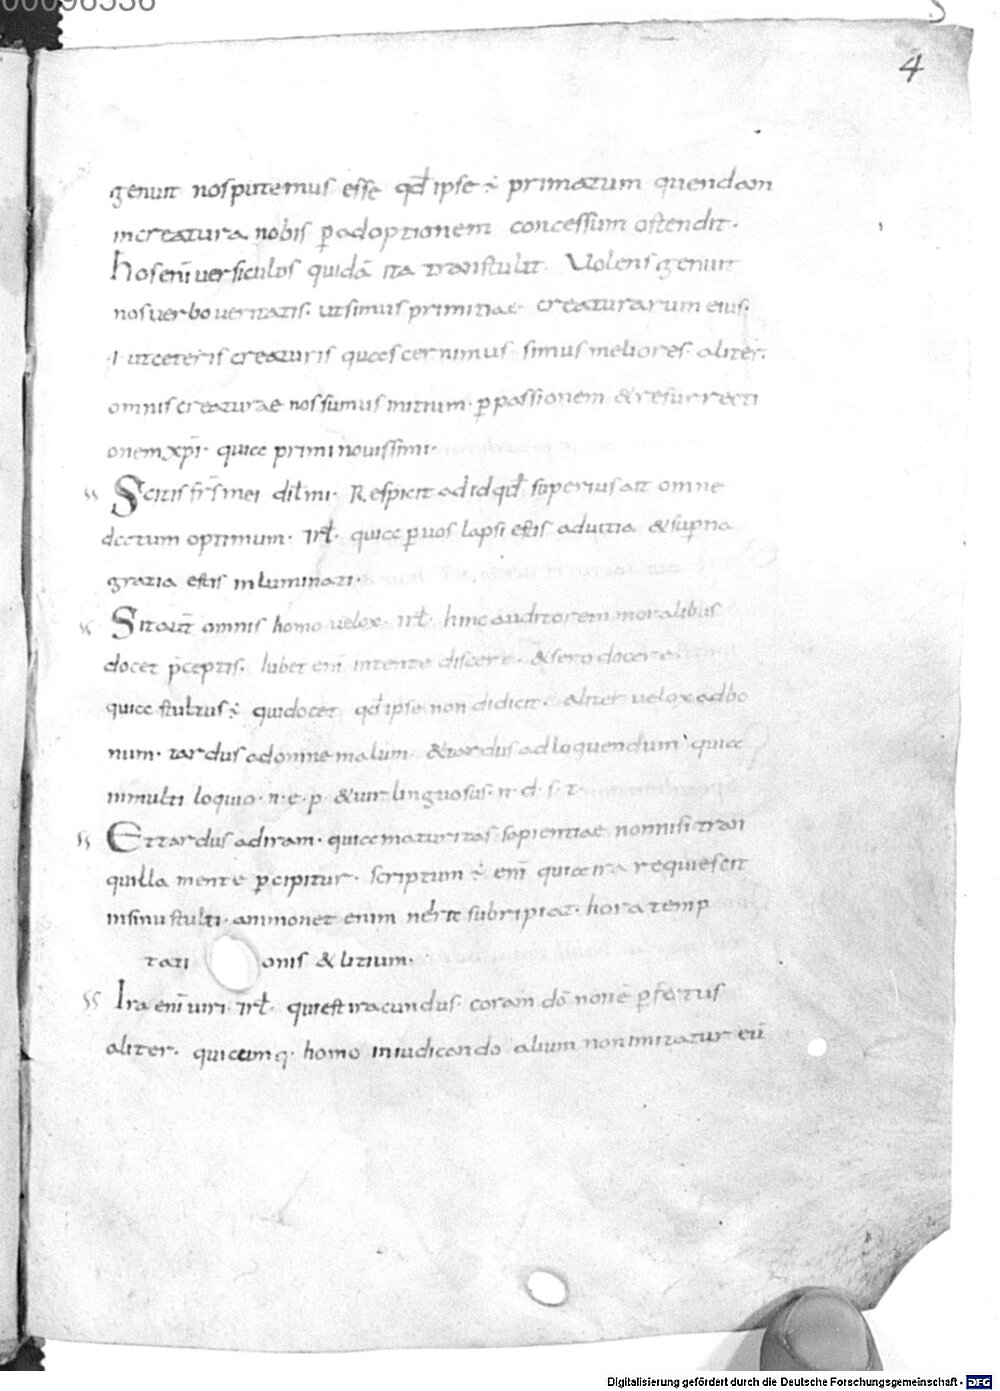 00096536
4
genuit nos putemus esse qđ ipse ē primatum quendam
in creatura nobis ꝑ adoptionem concessum ostendit.
hos enī versiculos quidā ita transtulit. Uolens genuit
nos verbo veritatis. ut simus primitiae creaturarum eius.
.i. ut ceteris creaturis quas cernimus simus meliores. aliter.
omnis creaturae nos sumus initium. ꝑ passionem & resurrecti
onem xp̄i. quia primi novissimi.
Scitis fr̄s mei dil̄mi. Respicit ad id qđ superius ait omne
datum optimum. Irł. quia ꝑ vos lapsi estis ad uitia & suꝑna
gratia estis inluminati.
Sit aūt omnis homo velox. irł. hinc auditorem moralibus
docet p̄ceptis. Iubet enī intente discere. & sero docere.
quia stultus ē. qui docet qđ ipse non didicit. aliter velox ad bo
num. tardus ad omne malum. & tardus ad loquendum quia
in multi loquio. n. e. p. & uir linguosus. n. d. s. t.
Et tardus ad iram. quia maturitas sapientiae nonnisi tran
quilla mente ꝑcipitur. scriptum ē enī quia ira requiescit
in sinu stulti. ammonet enim ne hęc subripiat. hora temp
tati onis & litium.
Ira enī uiri. irł. qui est iracundus. coram dō non ē ꝑfectus
aliter. quicumq. homo in iudicando alium non imitatur eū
Digitalisierung gefördert durch die Deutsche Forschungsgemeinschaft - DFG